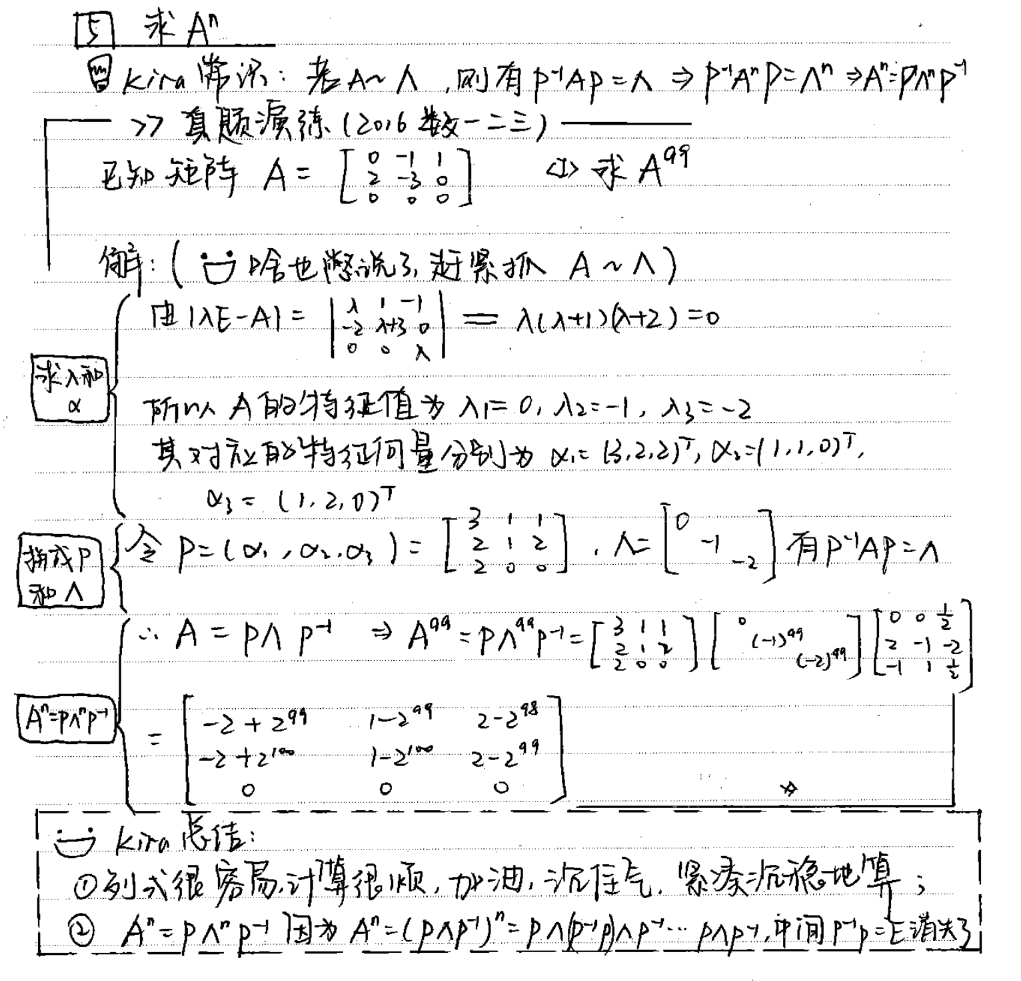 5 求 Aⁿ
Kira 常识: 若 A~Λ, 则有 P⁻¹AP=Λ ⇒ P⁻¹AⁿP=Λⁿ ⇒ Aⁿ=PΛⁿP⁻¹
>> 真题演练 (2016 数一二三)
已知 矩阵 A = [0 -1 1; 2 -3 0; 0 0 0] <1> 求 A⁹⁹
解: ( 啥也憋说了, 赶紧抓 A~Λ )
由 |λE-A| = |λ 1 -1; -2 λ+3 0; 0 0 λ| = λ(λ+1)(λ+2)=0
求λ和α
所以 A 的特征值为 λ₁=0, λ₂=-1, λ₃=-2
其对应的特征向量分别为 α₁=(3,2,2)ᵀ, α₂=(1,1,0)ᵀ,
α₃=(1,2,0)ᵀ
拼成P和Λ
令 P=(α₁,α₂,α₃) = [3 1 1; 2 1 2; 2 0 0], Λ=[0 -1 -2] 有 P⁻¹AP=Λ
∴ A = PΛP⁻¹ ⇒ A⁹⁹=PΛ⁹⁹P⁻¹ = [3 1 1; 2 1 2; 2 0 0] [0 (-1)⁹⁹ (-2)⁹⁹] [0 0 1/2; 2 -1 -2; -1 1 1/2]
Aⁿ=PΛⁿP⁻¹
= [-2+2⁹⁹ 1-2⁹⁹ 2-2⁹⁸; -2+2¹⁰⁰ 1-2¹⁰⁰ 2-2⁹⁹; 0 0 0]
Kira 总结:
①列式很容易,计算很烦,加油,沉住气,紧凑沉稳地算;
② Aⁿ=PΛⁿP⁻¹ 因为 Aⁿ=(PΛP⁻¹)ⁿ=PΛ(P⁻¹P)ΛP⁻¹…PΛP⁻¹,中间P⁻¹P=E消失了